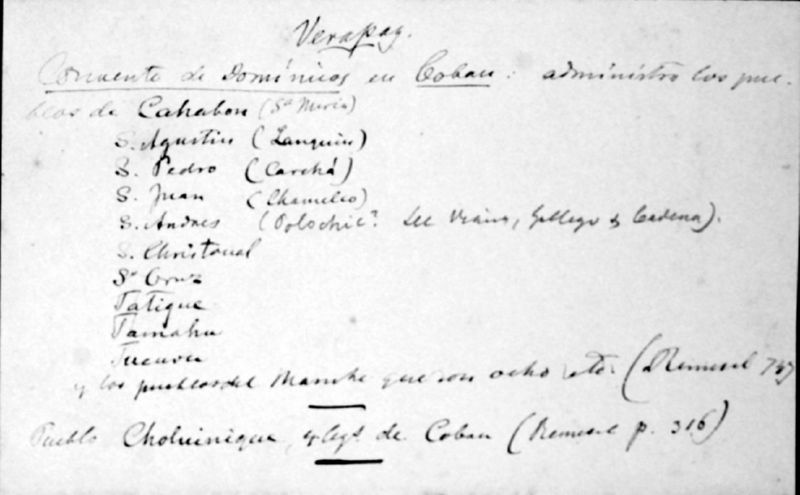 Verapaz.
Convento de Dominicos en Coban: administro los pue-
blos de Cahabon (Sta Maria)
S. Agustin (Lanquin)
S. Pedro (Carchá)
S. Juan (Chamelco)
S. Andres (Polochic? See Viana, Gallego & Cadena).
S. Christoval
Sta Cruz
Tatique
Tamahu
Tucuru
y los pueblos del Manche que son ocho (Remesal 737
Pueblo de Coban (Remesal p. 316)